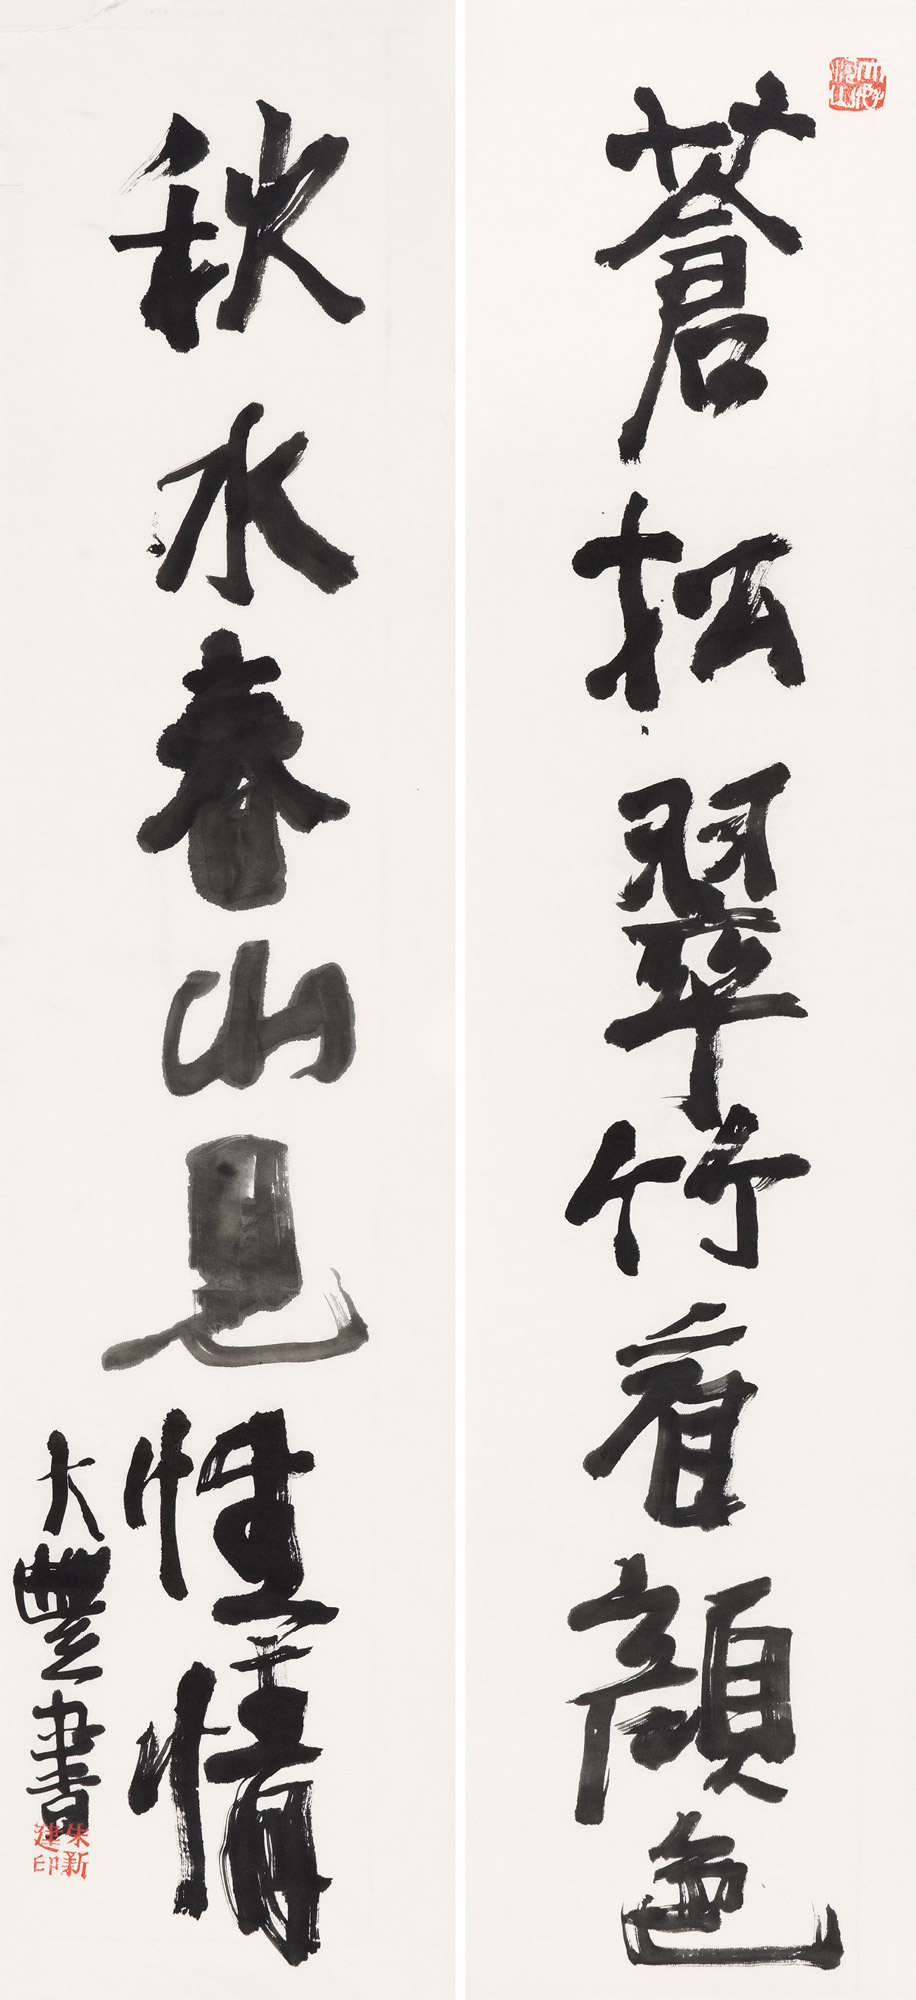 蒼松翠竹看顏色
秋水春山見性情
大豐書
朱新建印